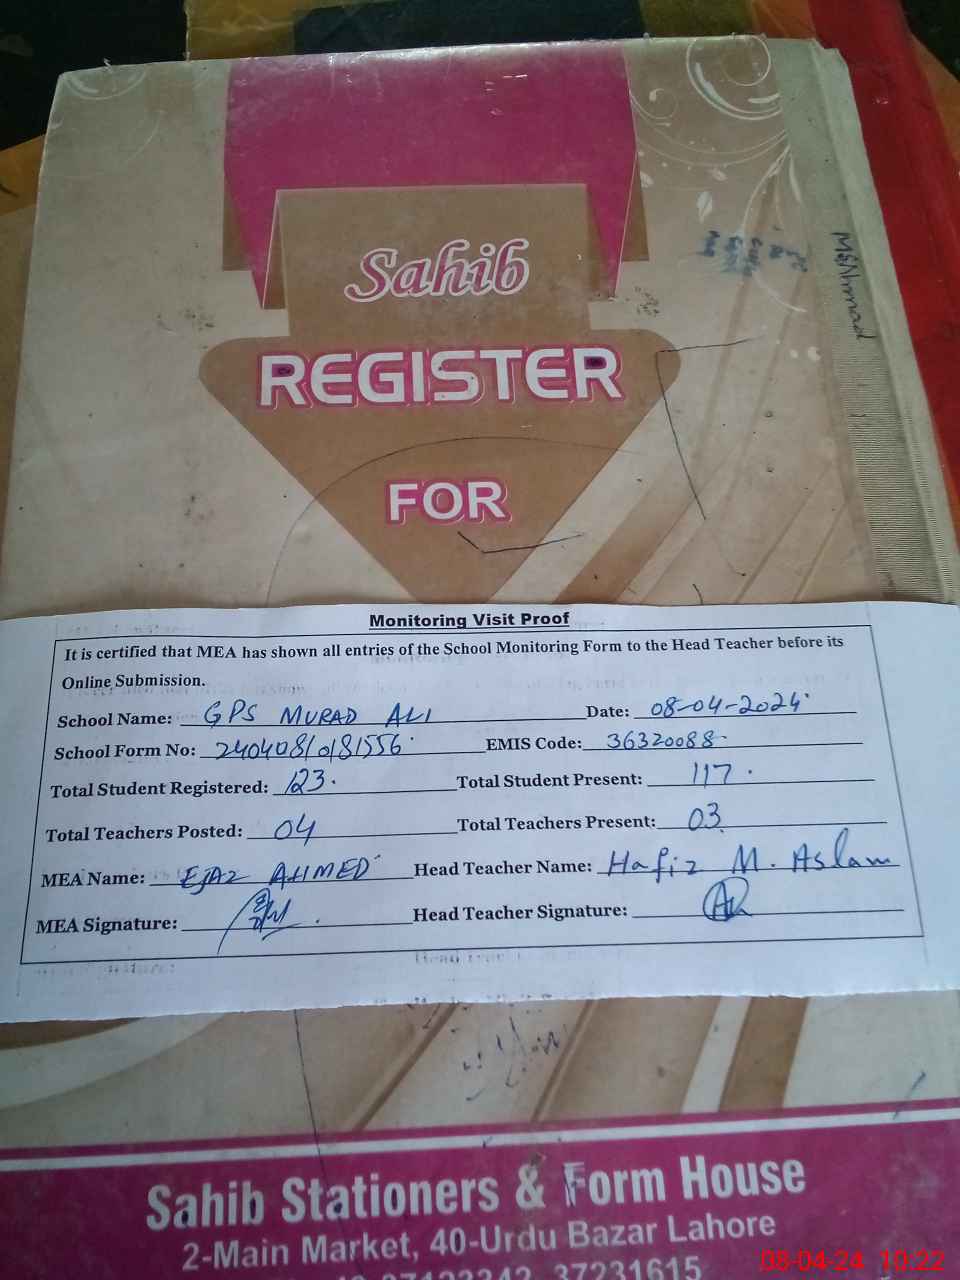 Sahib
REGISTER
FOR
M5/Ahmad
Monitoring Visit Proof
It is certified that MEA has shown all entries of the School Monitoring Form to the Head Teacher before its
Online Submission.
School Name: GPS MURAD ALI Date: 08-04-2024
School Form No: 24040810181556 EMIS Code: 36320088
Total Student Registered: 123 Total Student Present: 117
Total Teachers Posted: 04 Total Teachers Present: 03
MEA Name: EJAZ AHMED Head Teacher Name: Hafiz M. Aslam
MEA Signature: Head Teacher Signature:
Sahib Stationers & Form House
2-Main Market, 40-Urdu Bazar Lahore
37231615
08-04-24 10:22